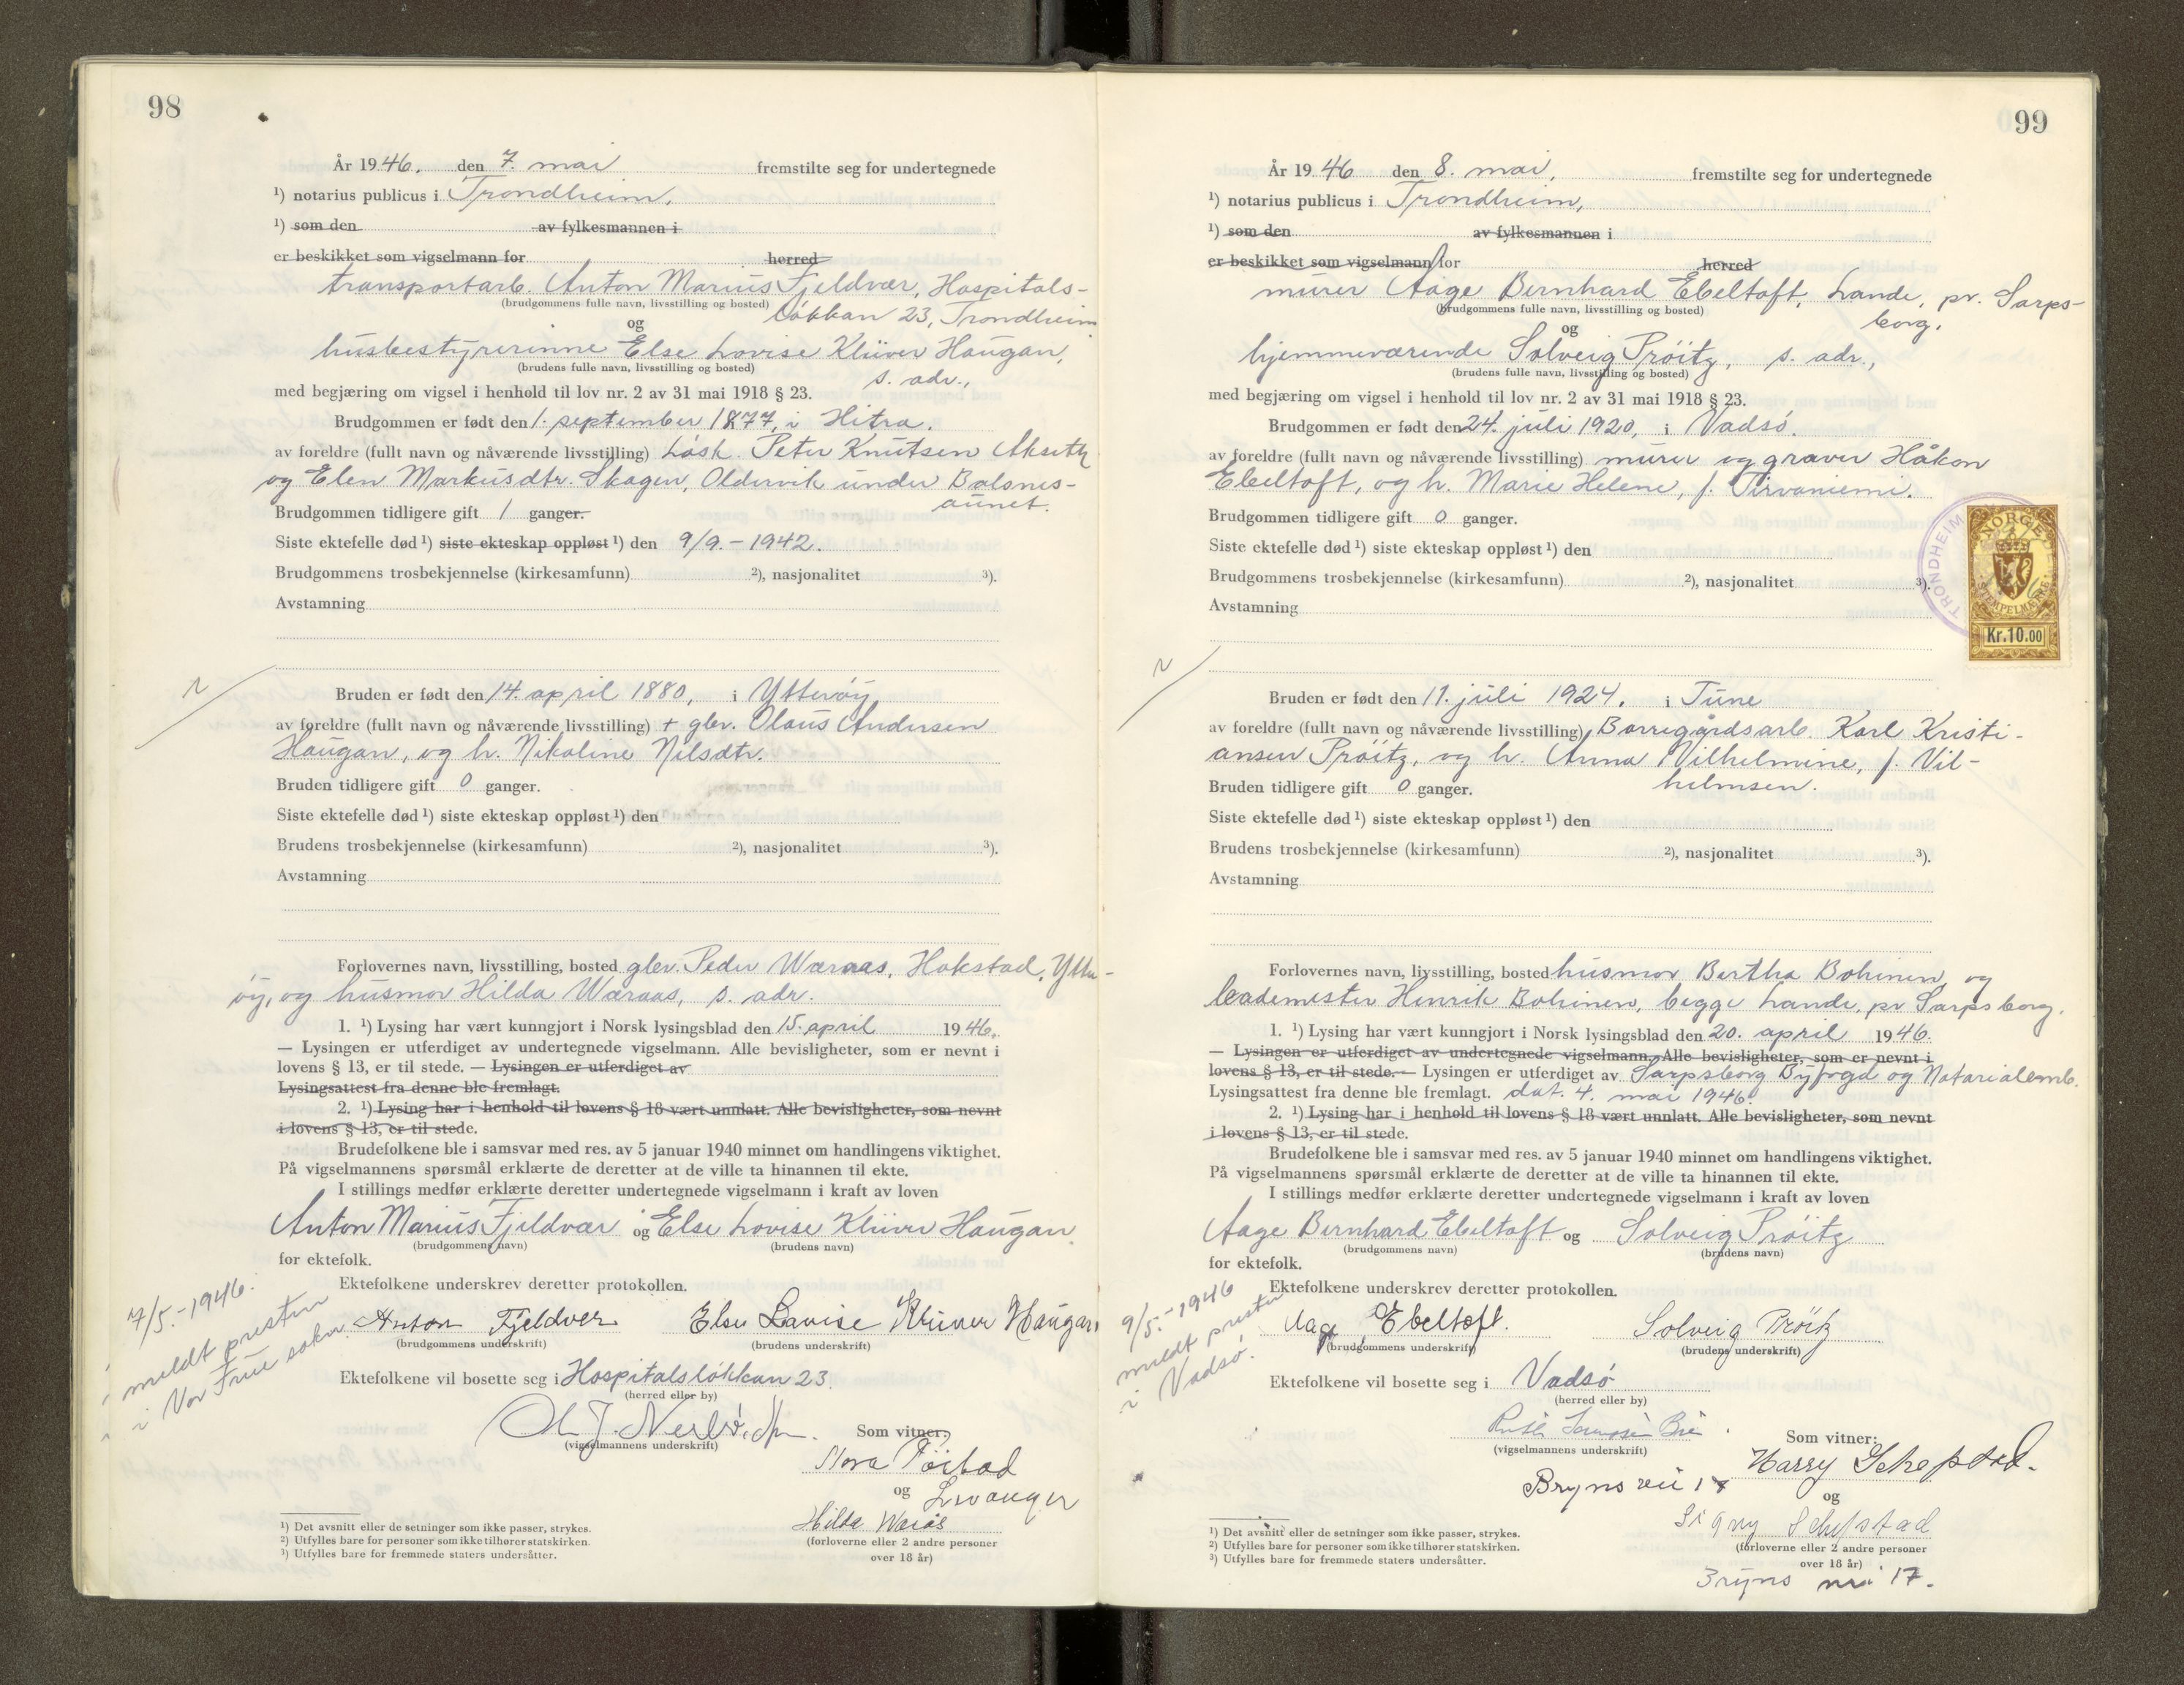 98
År 1946, den 7. mai fremstilte seg for undertegnede
¹) notarius publicus i Trondheim,
¹) som den av fylkesmannen i
er beskikket som vigselmann for herred
transportarb. Anton Marius Fjeldvær, Hospitals-
(brudgommens fulle navn, livsstilling og bosted) løkkan 23, Trondheim
og
husbestyrerinne Else Lovise Klüver Haugan,
(brudens fulle navn, livsstilling og bosted) s. adr.,
med begjæring om vigsel i henhold til lov nr. 2 av 31 mai 1918 § 23.
Brudgommen er født den 1. september 1877, i Hitra.
av foreldre (fullt navn og nåværende livsstilling) Løsk. Peter Knutsen Akseth
og Elen Markusdtr. Skagen, Oldervik under Balsnes-
aunet.
Brudgommen tidligere gift 1 ganger.
Siste ektefelle død ¹) siste ekteskap oppløst ¹) den 9/9.-1942.
Brudgommens trosbekjennelse (kirkesamfunn) ²), nasjonalitet ³).
Avstamning
Bruden er født den 14. april 1880, i Ytterøy
av foreldre (fullt navn og nåværende livsstilling) + gbr. Olaus Andersen
Haugan, og h. Nikoline Nilsdtr.
Bruden tidligere gift 0 ganger.
Siste ektefelle død ¹) siste ekteskap oppløst ¹) den
Brudens trosbekjennelse (kirkesamfunn) ²), nasjonalitet ³).
Avstamning
Forlovernes navn, livsstilling, bosted gbr. Peder Wæraas, Hokstad, Ytter-
øy, og husmor Hilda Wæraas, s. adr.
1. ¹) Lysing har vært kunngjort i Norsk lysingsblad den 15. april 1946.
— Lysingen er utferdiget av undertegnede vigselmann. Alle bevisligheter, som er nevnt i
lovens § 13, er til stede. — Lysingen er utferdiget av
Lysingsattest fra denne ble fremlagt.
2. ¹) Lysing har i henhold til lovens § 18 vært unnlatt. Alle bevisligheter, som nevnt
i lovens § 13, er til stede.
Brudefolkene ble i samsvar med res. av 5 januar 1940 minnet om handlingens viktighet.
På vigselmannens spørsmål erklærte de deretter at de ville ta hinannen til ekte.
I stillings medfør erklærte deretter undertegnede vigselmann i kraft av loven
Anton Marius Fjeldvær og Else Lovise Klüver Haugan.
(brudgommens navn) (brudens navn)
for ektefolk.
Ektefolkene underskrev deretter protokollen.
7/5.-1946.
meldt presten
i Vor Frue sokn.
Anton Fjeldver Else Lovise Klüver Haugan
(brudgommens underskrift) (brudens underskrift)
Ektefolkene vil bosette seg i Hospitalsløkkan 23.
(herred eller by)
(vigselmannens underskrift) Som vitner:
og Levanger
Hilda
(forloverne eller 2 andre personer
over 18 år)
¹) Det avsnitt eller de setninger som ikke passer, strykes.
²) Utfylles bare for personer som ikke tilhører statskirken.
³) Utfylles bare for fremmede staters undersåtter.
99
År 1946 den 8. mai, fremstilte seg for undertegnede
¹) notarius publicus i Trondheim,
¹) som den av fylkesmannen i
er beskikket som vigselmann for herred
murer Aage Bernhard Ebeltoft, Lande, pr. Sarps-
(brudgommens fulle navn, livsstilling og bosted) borg,
og
hjemmeværende Solveig Prøitz, s. adr.,
(brudens fulle navn, livsstilling og bosted)
med begjæring om vigsel i henhold til lov nr. 2 av 31 mai 1918 § 23.
Brudgommen er født den 24. juli 1920, i Vadsø.
av foreldre (fullt navn og nåværende livsstilling) murer og graver Håkon
Ebeltoft, og h. Marie Helene, f. Tirvaniemi.
Brudgommen tidligere gift 0 ganger.
Siste ektefelle død ¹) siste ekteskap oppløst ¹) den
Brudgommens trosbekjennelse (kirkesamfunn) ²), nasjonalitet ³).
Avstamning
TRONDHEIM
NORGE
STEMPELMERKE
Kr.10.00
Bruden er født den 11. juli 1924, i Tune
av foreldre (fullt navn og nåværende livsstilling) Borregårdsarb. Karl Kristi-
ansen Prøitz, og h. Anna Vilhelmine, f. Vil-
helmsen.
Bruden tidligere gift 0 ganger.
Siste ektefelle død ¹) siste ekteskap oppløst ¹) den
Brudens trosbekjennelse (kirkesamfunn) ²), nasjonalitet ³).
Avstamning
Forlovernes navn, livsstilling, bosted husmor Bertha Bohinen, og
bademester Henrik Bohinen, begge Lande, pr Sarpsborg.
1. ¹) Lysing har vært kunngjort i Norsk lysingsblad den 20. april 1946.
— Lysingen er utferdiget av undertegnede vigselmann. Alle bevisligheter, som er nevnt i
lovens § 13, er til stede. — Lysingen er utferdiget av Sarpsborg Byfogd og Notarialemb.
Lysingsattest fra denne ble fremlagt. dat. 4. mai 1946.
2. ¹) Lysing har i henhold til lovens § 18 vært unnlatt. Alle bevisligheter, som nevnt
i lovens § 13, er til stede.
Brudefolkene ble i samsvar med res. av 5 januar 1940 minnet om handlingens viktighet.
På vigselmannens spørsmål erklærte de deretter at de ville ta hinannen til ekte.
I stillings medfør erklærte deretter undertegnede vigselmann i kraft av loven
Aage Bernhard Ebeltoft og Solveig Prøitz
(brudgommens navn) (brudens navn)
for ektefolk.
Ektefolkene underskrev deretter protokollen.
9/5.-1946
meldt presten
i Vadsø.
Aage Ebeltoft. Solveig Prøitz
(brudgommens underskrift) (brudens underskrift)
Ektefolkene vil bosette seg i Vadsø
(herred eller by)
(vigselmannens underskrift) Som vitner:
Harry Schefstad.
og
Signy Schefstad
(forloverne eller 2 andre personer
over 18 år)
17.
¹) Det avsnitt eller de setninger som ikke passer, strykes.
²) Utfylles bare for personer som ikke tilhører statskirken.
³) Utfylles bare for fremmede staters undersåtter.